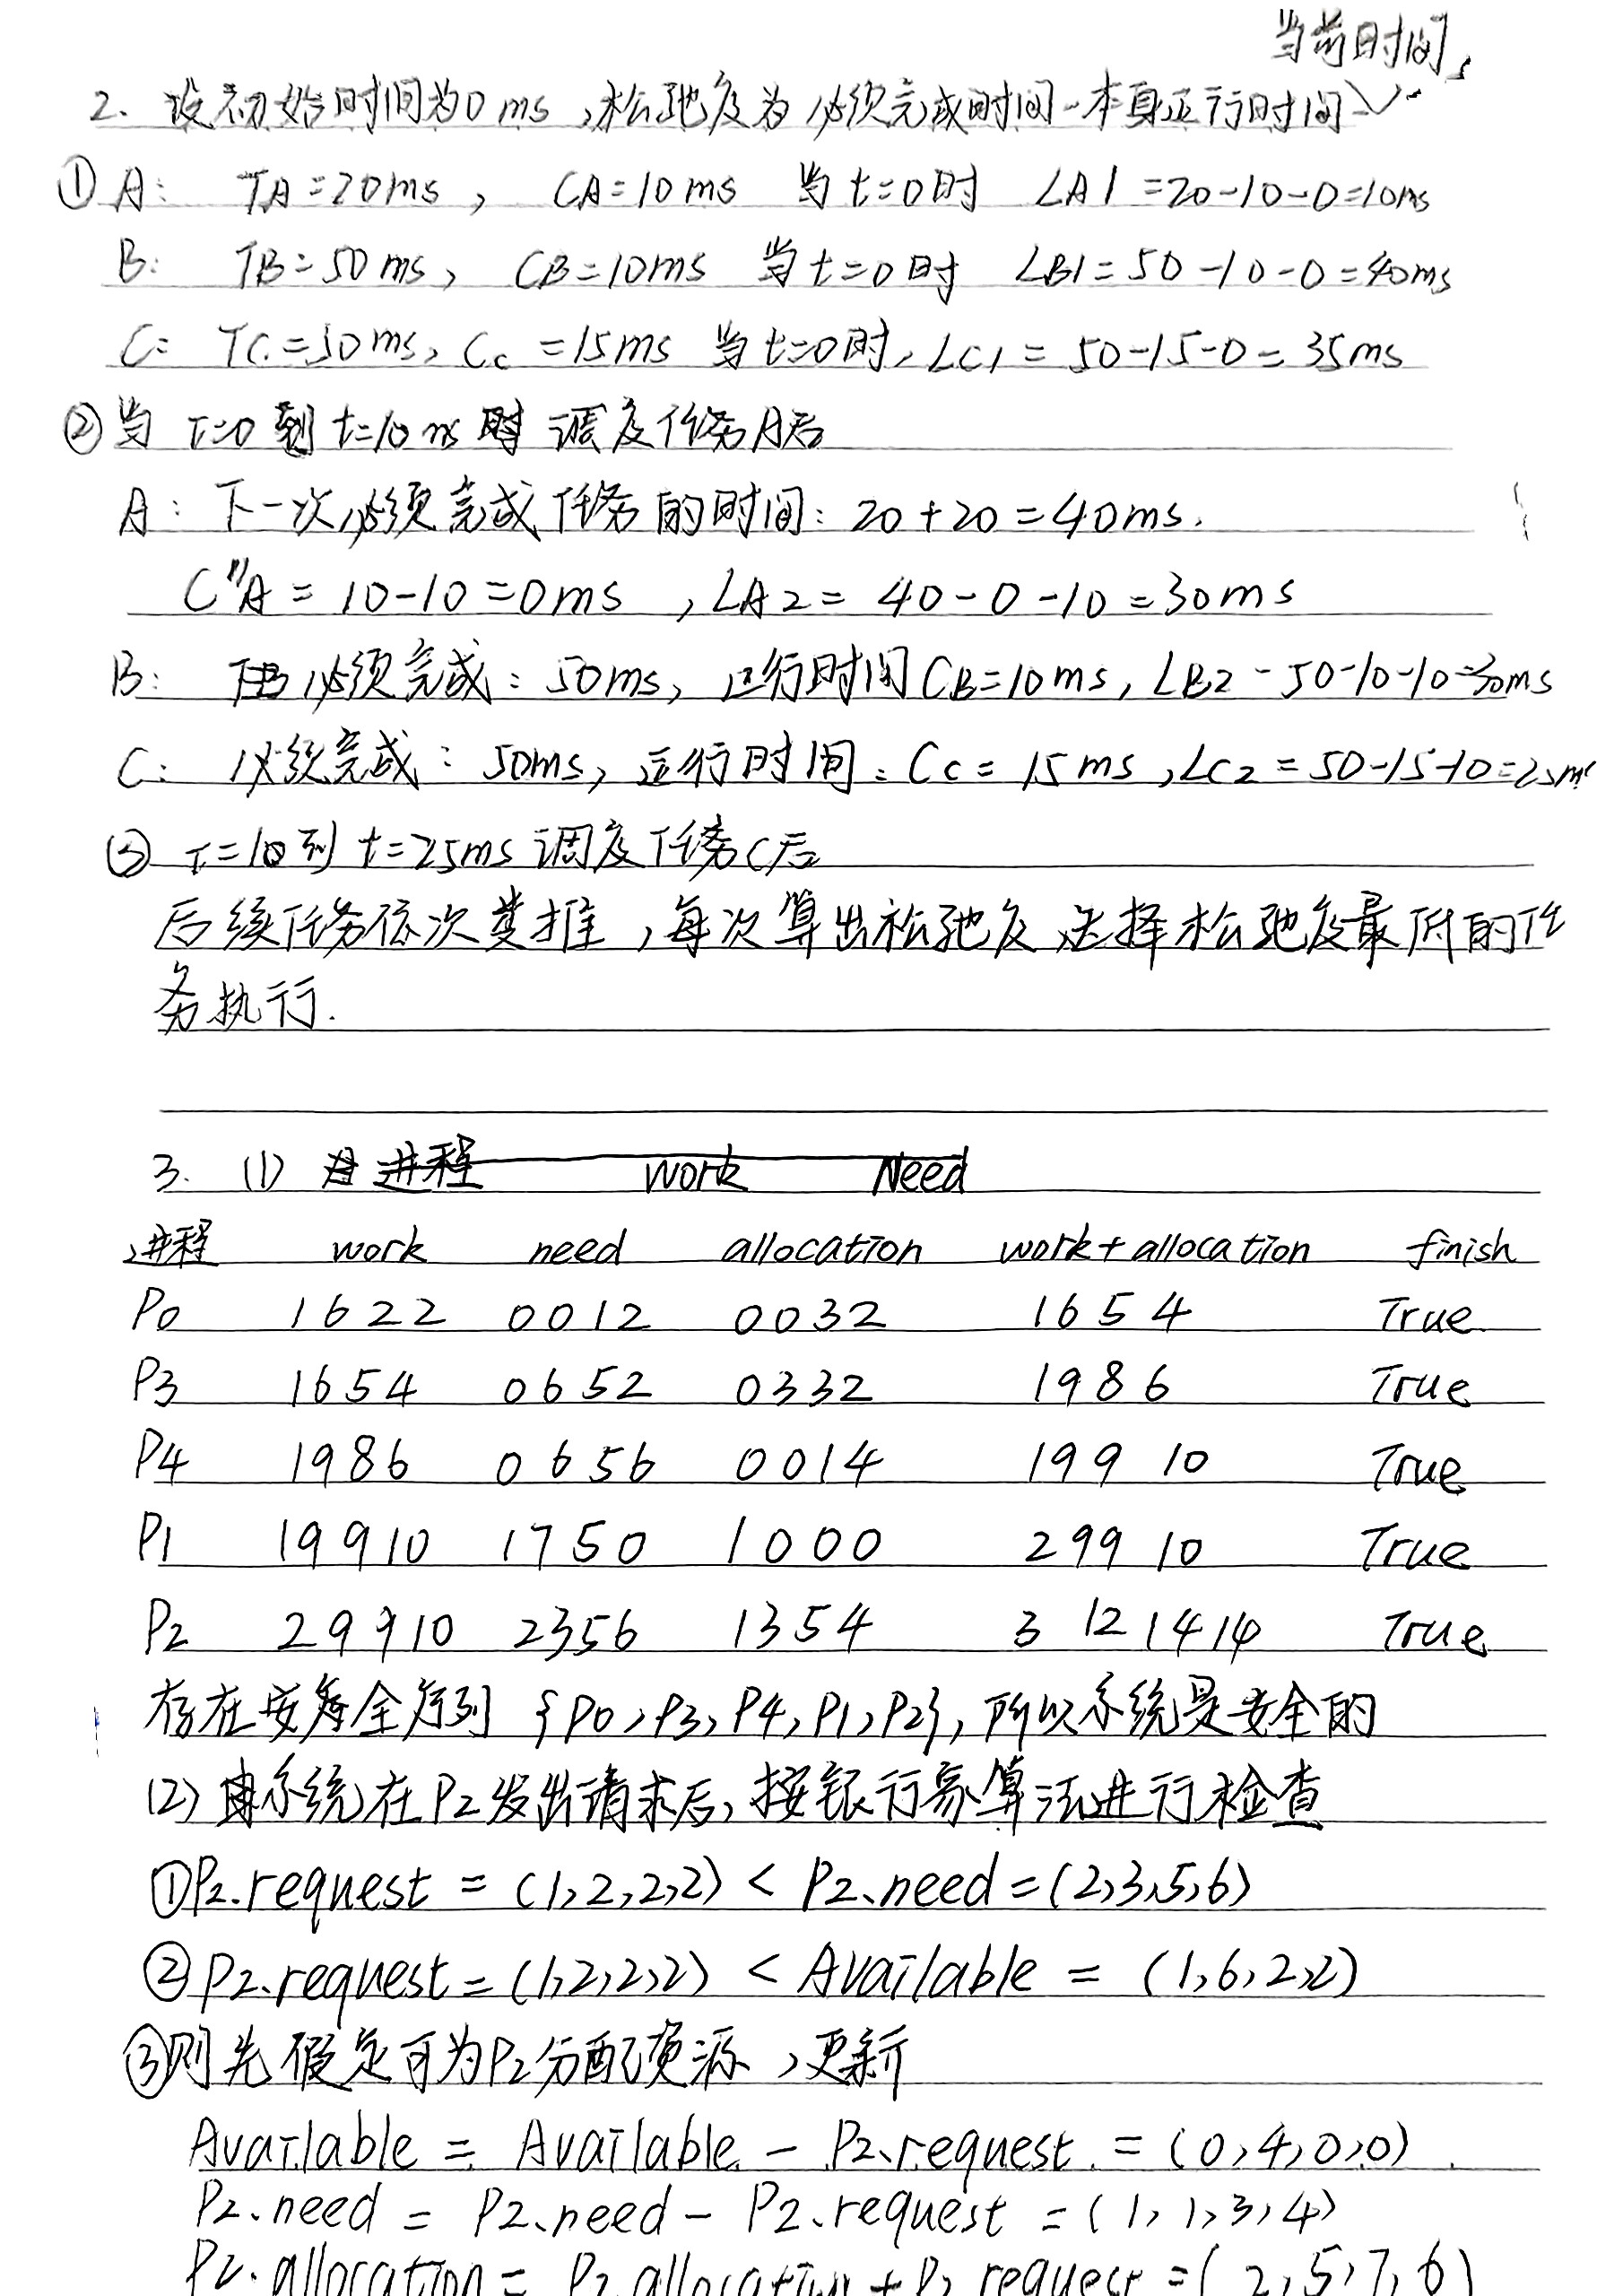 当前时间,
2. 设初始时间为0ms,松弛度为必须完成时间-本身运行时间-
① A: TA=20ms, CA=10ms 当t=0时 LA1=20-10-0=10ms
B: TB=50ms, CB=10ms 当t=0时 LB1=50-10-0=40ms
C: TC=50ms, Cc=15ms 当t=0时, LC1=50-15-0=35ms
② 当 t=0 到 t=10ms 时 调度任务A后
A: 下一次必须完成任务的时间: 20+20=40ms.
C"A=10-10=0ms, LA2=40-0-10=30ms
B: 必须完成: 50ms, 运行时间CB=10ms, LB2-50-10-10=30ms
C: 必须完成: 50ms, 运行时间: Cc=15ms, LC2=50-15-10=25ms
③ t=10到t=25ms调度任务C后
后续任务依次类推,每次算出松弛度,选择松弛度最低的任
务执行.
3. (1) 进程 work Need
进程 work need allocation work+allocation finish
P0 1622 0012 0032 1654 True
P3 1654 0652 0332 1986 True
P4 1986 0656 0014 199 10 True
P1 19910 1750 1000 299 10 True
P2 29910 2356 1354 3 12 14 14 True
存在安全序列 {P0,P3,P4,P1,P2},所以系统是安全的
(2) 系统在P2发出请求后,按银行家算法进行检查
①P2.request=(1,2,2,2)<P2.need=(2,3,5,6)
②P2.request=(1,2,2,2)<Available=(1,6,2,2)
③则先假定可为P2分配资源,更新
Available=Available-P2.request.=(0,4,0,0).
P2.need=P2.need-P2.request=(1,1,3,4)
P2.allocation=P2.allocation+P2.request=(2,5,7,6)